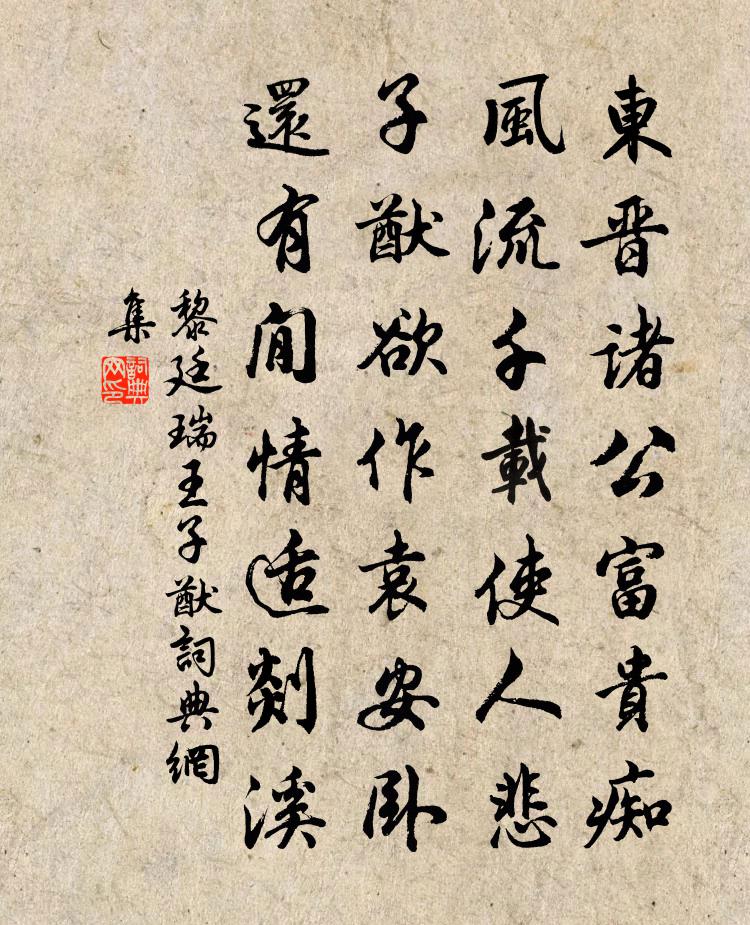 東晋諸公富貴痴
風流千載使人悲
子猷欲作袁安卧
還有閒情适剡溪
黎廷瑞王子猷詞典網
集
詞典
网印